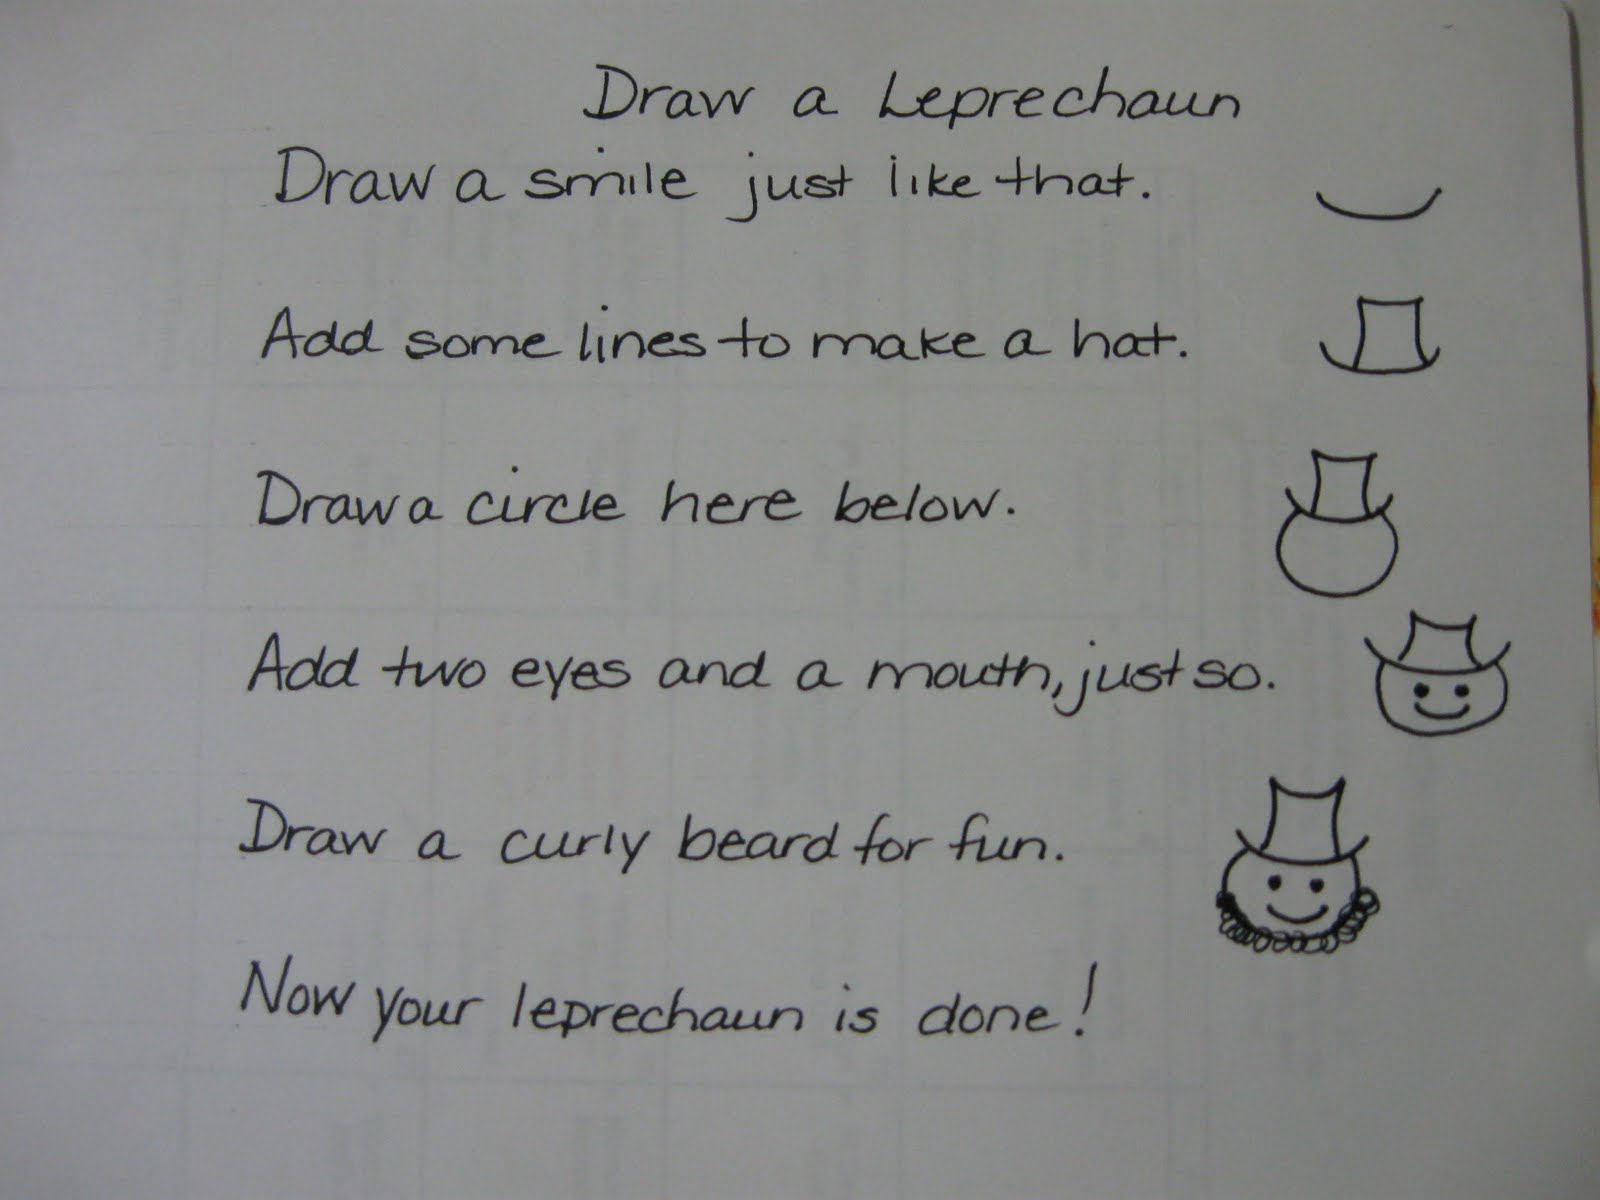 Draw a Leprechaun
Draw a smile just like that.
Add some lines to make a hat.
Draw a circle here below.
Add two eyes and a mouth, just so.
Draw a curly beard for fun.
Now your leprechaun is done!